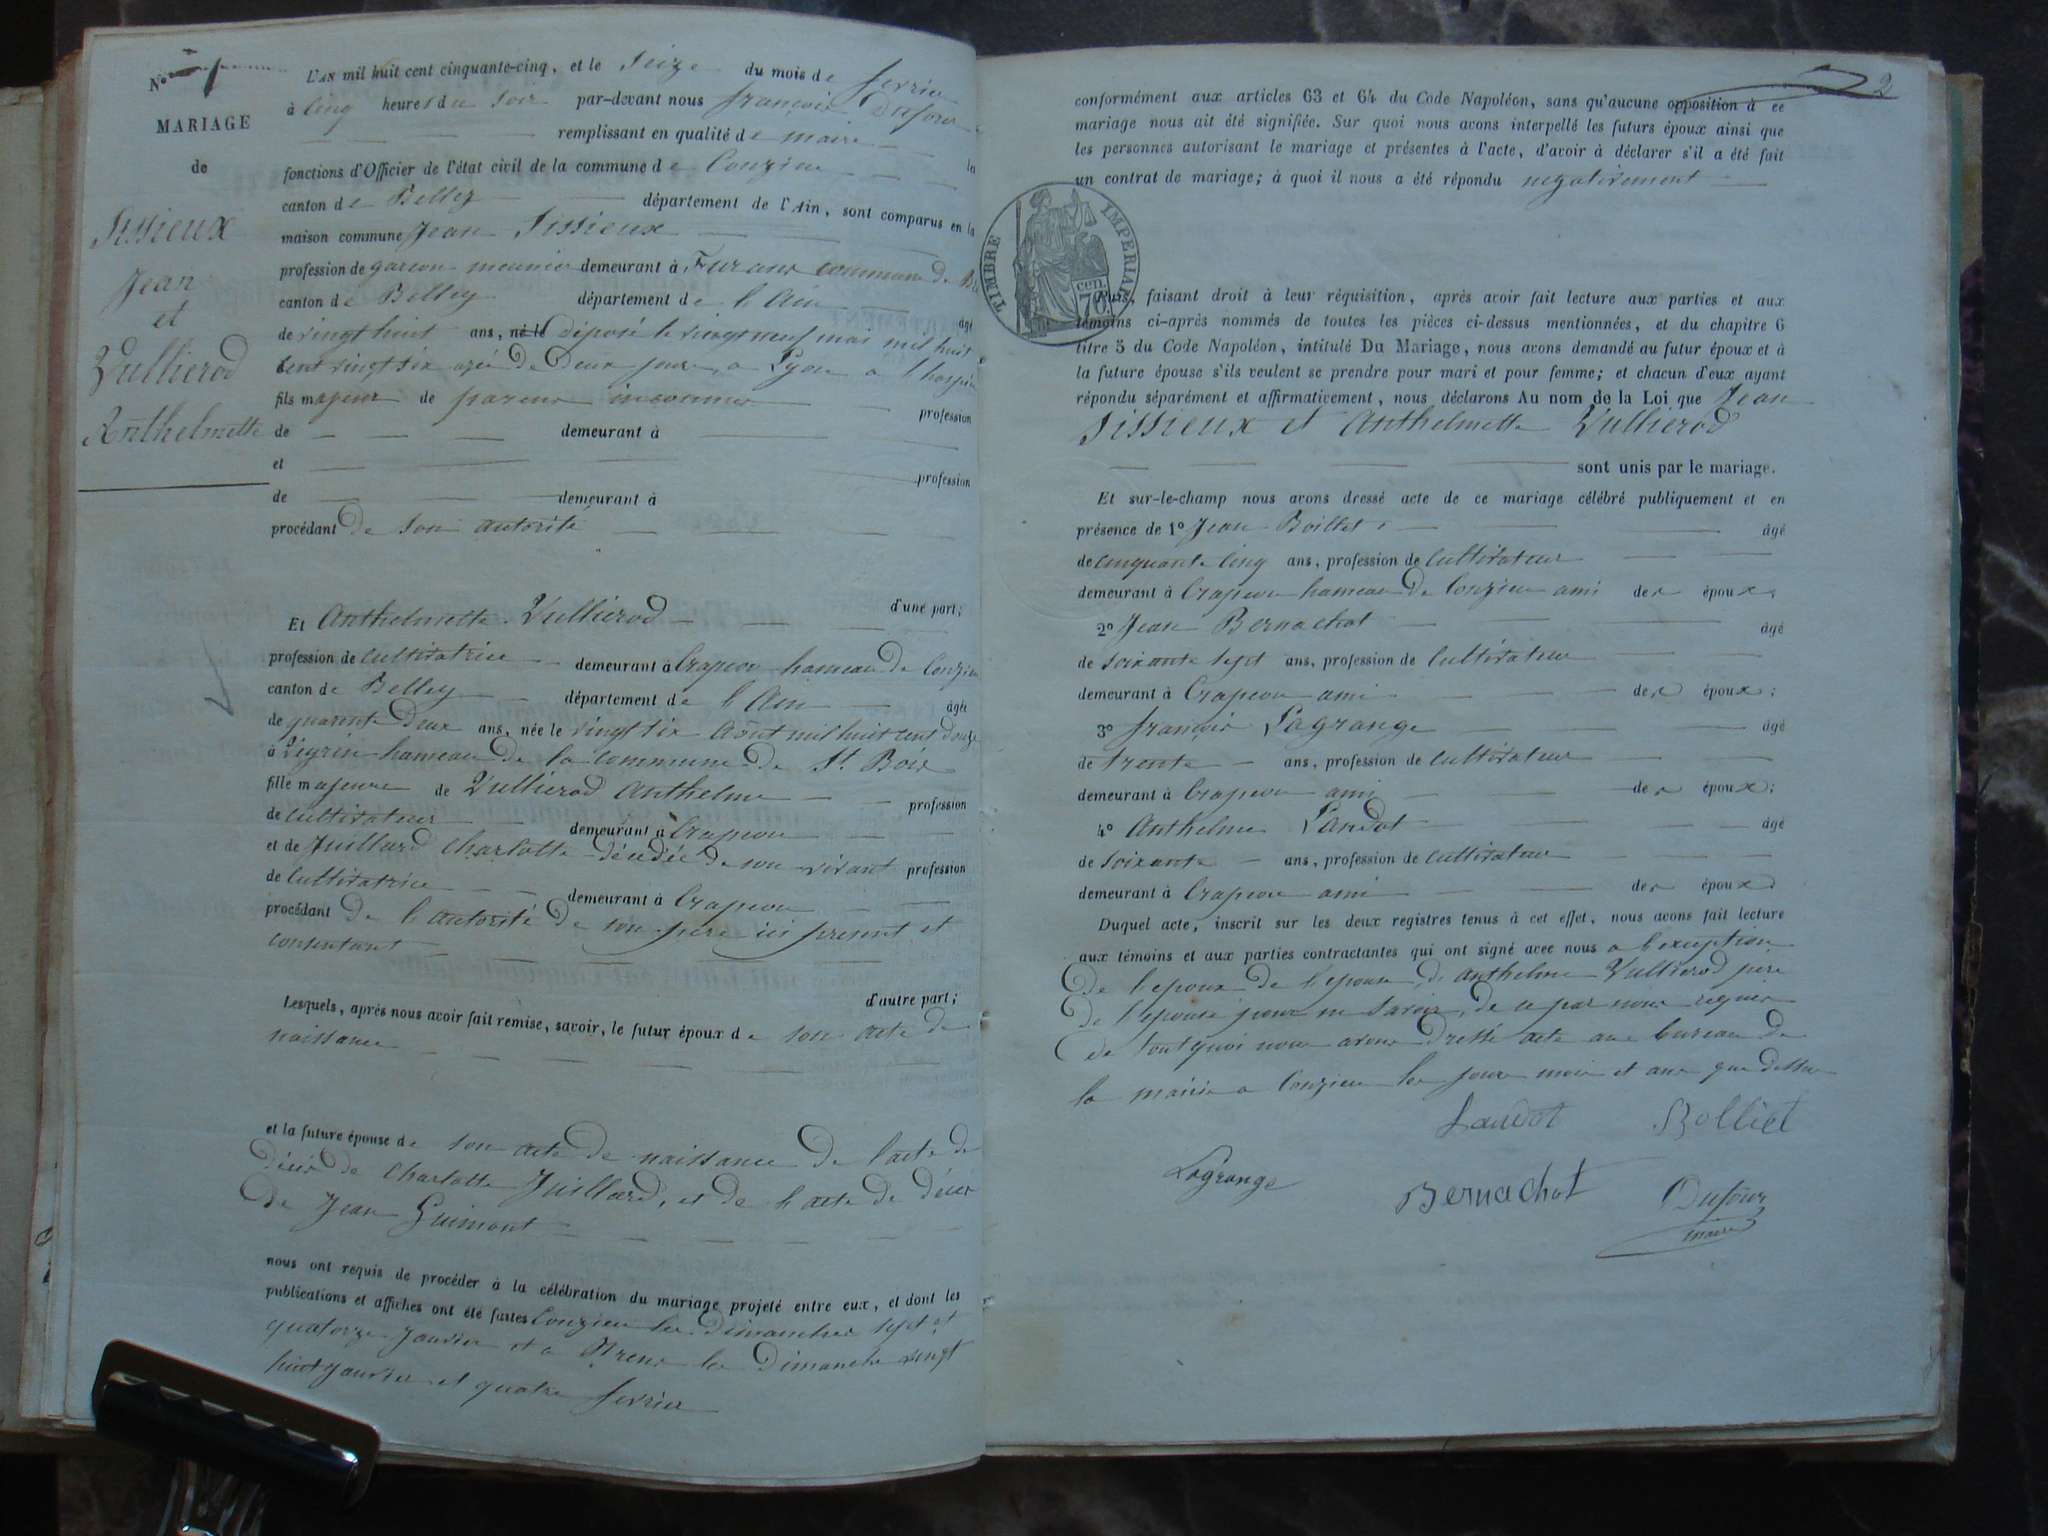 N° 1
MARIAGE
de
Sissieux
Jean
et
Vullierod
Anthelmette
L'AN mil huit cent cinquante-cinq, et le Seize du mois de fevrier
à cinq heures du soir par-devant nous françois Dufour
remplissant en qualité de maire la
fonctions d'Officier de l'état civil de la commune de Conzieu
canton de Belley département de l'Ain, sont comparus en la
maison commune Jean Sissieux
profession de garcon meunier demeurant à Furans commune de
canton de Belley département de l'Ain âgé
de vingt huit ans, né le déposé le vingt neuf mai mil huit
cent vingt six agé de Deux jours, a Lyon a l'hospice
fils majeur de parens inconnus profession
de demeurant à
et profession
de demeurant à
procédant de son autorité
d'une part;
Et Anthelmette Vullierod
profession de cultivatrice demeurant à Crapeou hameau de Conzieu
canton de Belley département de l'Ain âgée
de quarente deux ans, née le vingt six Août mil huit cent douze
à Vigrin hameau de la commune de St. Bois
fille majeure de Vullierod Anthelme profession
de cultivateur demeurant à Crapeou
et de Juillard Charlotte décédée de son vivant profession
de cultivatrice demeurant à Crapeou
procédant de l'autorité de son père ici present et
consentant
d'autre part;
Lesquels, après nous avoir fait remise, savoir, le futur époux de son acte de
naissance
et la future épouse de son acte de naissance de l'acte de
décès de Charlotte Juillard, et de l'acte de décès
de Jean Guimont
nous ont requis de procéder à la célébration du mariage projeté entre eux, et dont les
publications et affiches ont été faites Conzieu les dimanches sept et
quatorze janvier et a les Dimanche vingt
huit janvier et quatre fevrier
2
conformément aux articles 63 et 64 du Code Napoléon, sans qu'aucune opposition à ce
mariage nous ait été signifiée. Sur quoi nous avons interpellé les futurs époux ainsi que
les personnes autorisant le mariage et présentes à l'acte, d'avoir à déclarer s'il a été fait
un contrat de mariage; à quoi il nous a été répondu negativement
TIMBRE IMPERIAL
70 cen.
Puis, faisant droit à leur réquisition, après avoir fait lecture aux parties et aux
témoins ci-après nommés de toutes les pièces ci-dessus mentionnées, et du chapitre 6
titre 5 du Code Napoléon, intitulé Du Mariage, nous avons demandé au futur époux et à
la future épouse s'ils veulent se prendre pour mari et pour femme; et chacun d'eux ayant
répondu séparément et affirmativement, nous déclarons Au nom de la Loi que Jean
Sissieux et Anthelmette Vullierod
sont unis par le mariage.
Et sur-le-champ nous avons dressé acte de ce mariage célébré publiquement et en
présence de 1° Jean Bolliet âgé
de cinquante cinq ans, profession de cultivateur
demeurant à Crapeou hameau de Conzieu ami des époux,
2° Jean Bernachot âgé
de soixante sept ans, profession de cultivateur
demeurant à Crapeou ami des époux;
3° françois Lagrange âgé
de trente ans, profession de cultivateur
demeurant à Crapeou ami des époux;
4° Anthelme Landot âgé
de soixante ans, profession de cultivateur
demeurant à Crapeou ami des époux
Duquel acte, inscrit sur les deux registres tenus à cet effet, nous avons fait lecture
aux témoins et aux parties contractantes qui ont signé avec nous a l'exception
De l'epoux de l'epouse, d'anthelme Vullierod père
de l'epouse pour ne savoir, de ce par nous requis
de tout quoi nous avons dressé acte au bureau de
la mairie a Conzieu les jour mois et an que dessus
Landot Bolliet
Lagrange
Bernachot Dufour
maire